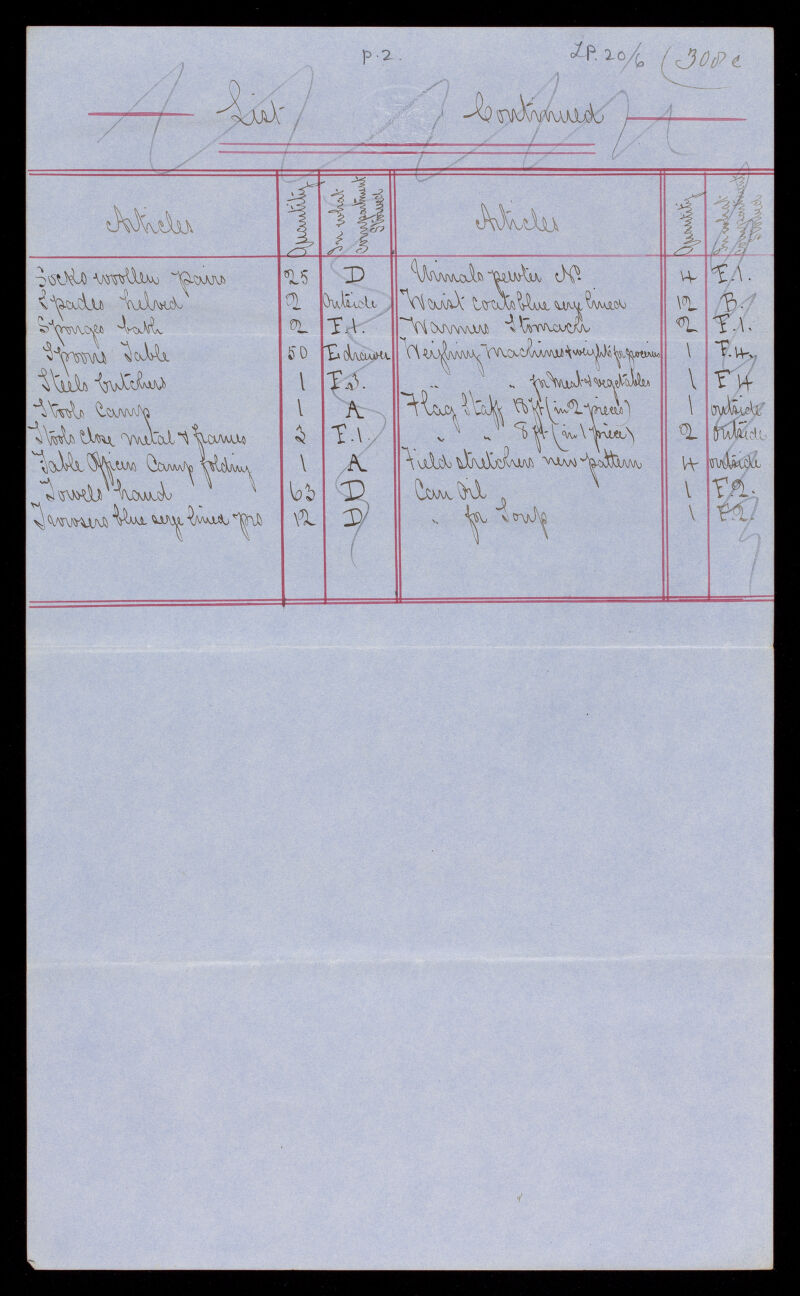 p. 2. LP. 20/6 (308 c
List Continued
Articles Quantity In what compartment Stowed Articles Quantity In what compartment Stowed
Socks woollen pairs 25 D Urinals pewter No. 4 F.1.
Spades helved 2 Outside Waist coats blue serge lined 12 B.
Sponges bath 2 F.1. Warmers Stomach 2 F.1.
Spoons Table 50 E drawer Weighing Machines & weights for groceries 1 F.4.
Steels butchers 1 F.3. " " for Meat & vegetables 1 F 4
Stools Camp 1 A Flag Staff 18 ft (in 2 pieces) 1 outside
Stools close metal & frames 2 F.1. " " 8 ft (in 1 piece) 2 outside
Table Officers Camp folding 1 A Field stretchers new pattern 4 outside
Towels hand 63 D Can Oil 1 F.2.
Trousers blue serge lined prs 12 D " for Soup 1 F.2.